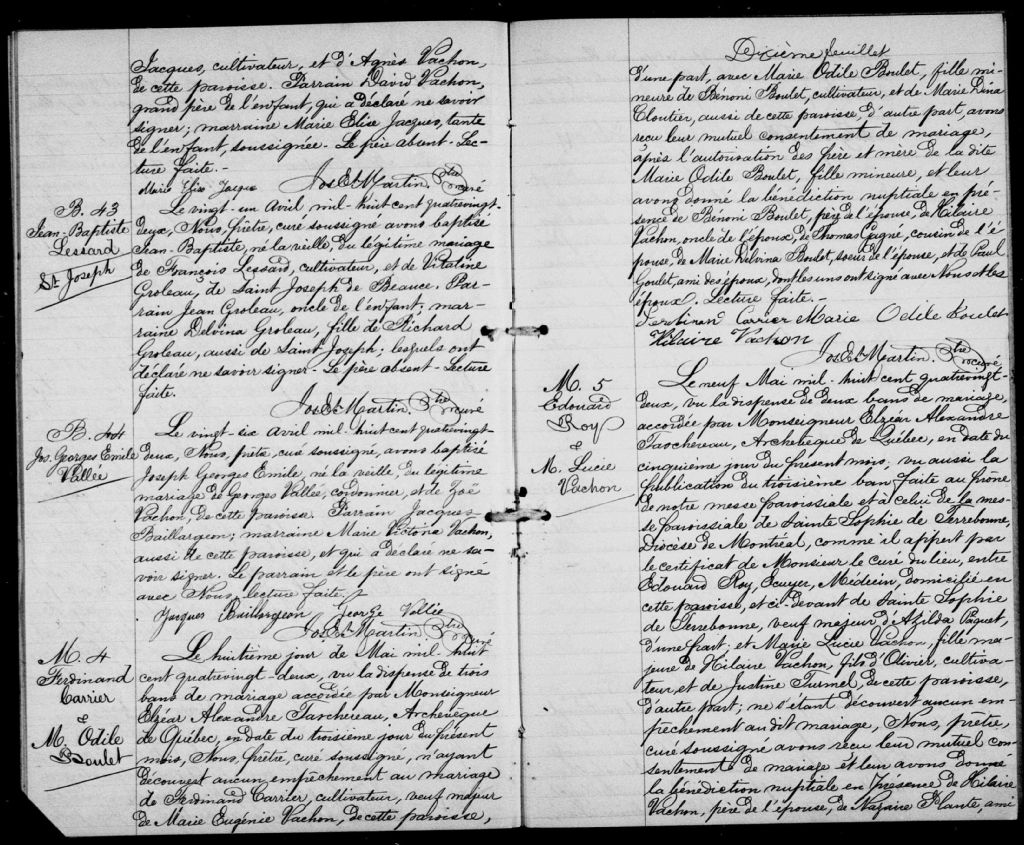 Jacques, cultivateur, et d'Agnès Vachon,
de cette paroisse. Parrain David Vachon,
grand père de l'enfant, qui a déclaré ne savoir
signer; marraine Marie Elise Jacques, tante
de l'enfant, soussignée. Le père absent. Lec-
ture faite.-
Marie Elise Jacque Jos Et. Martin, Ptre curé
B. 43
Jean-Baptiste
Lessard
St Joseph
Le vingt-un Avril mil-huit cent quatrevingt
deux, Nous, prêtre, curé soussigné avons baptisé
Jean-Baptiste, né la vielle, du légitime mariage
de François Lessard, cultivateur, et de Vitaline
Groleau, de Saint Joseph de Beauce. Par-
rain Jean Groleau, oncle de l'enfant; mar-
raine Delvina Groleau, fille de Richard
Groleau, aussi de Saint Joseph; lesquels ont
déclaré ne savoir signer. Le père absent. Lecture
faite.
Jos Et. Martin, Ptre curé
B. 44
Jos. Georges Emile
Vallée
Le vingt-six Avril mil-huit cent quatrevingt
deux, Nous, prêtre, curé soussigné, avons baptisé
Joseph Georges Emile, né la veille, du légitime
mariage de Georges Vallée, cordonnier, et de Zoé
Vachon, de cette paroisse. Parrain Jacques
Baillargeon; marraine Marie Victoria Vachon,
aussi de cette paroisse, et qui a déclaré ne sa-
voir signer. Le parrain et le père ont signé
avec Nous, lecture faite.
Jacques Baillargeon George Vallie
Jos Et. Martin, Ptre curé
M. 4
Ferdinand
Carrier
&
M. Odile
Boulet
Le huitième jour de Mai mil-huit
cent quatrevingt-deux, vu la dispense de trois
bans de mariage accordée par Monseigneur
Elzéar Alexandre Taschereau, Archevêque
de Québec, en date du troisième jour du présent
mois, Nous, prêtre, curé soussigné, n'ayant
découvert aucun empêchement au mariage
de Ferdinand Carrier, cultivateur, veuf majeur
de Marie Eugénie Vachon, de cette paroisse,
Dixième feuillet
d'une part, avec Marie Odile Boulet, fille mi-
neure de Bénoni Boulet, cultivateur, et de Marie Dina
Cloutier, aussi de cette paroisse, d'autre part, avons
reçu leur mutuel consentement de mariage,
après l'autorisation des père et mère de la dite
Marie Odile Boulet, fille mineure, et leur
avons donné la bénédiction nuptiale en pré-
sence de Bénoni Boulet, père de l'épouse, de Hilaire
Vachon, oncle de l'époux, de Thomas Gagné, cousin de l'é-
pouse, de Marie Delvina Boulet, soeur de l'épouse, et de Paul
Goulet, ami des époux, dont les uns ont signé avec Nous et les
époux. Lecture faite.-
Ferdinan Carrier Marie Odile Boulet
Hilaire Vachon
Jos Et. Martin, Ptre curé
M. 5
Edouard
Roy
&
M. Lucie
Vachon
Le neuf Mai mil-huit cent quatrevingt-
deux, vu la dispense de deux bans de mariage,
accordée par Monseigneur Elzéar Alexandre
Taschereau, Archevêque de Québec, en date du
cinquième jour du présent mois; vu aussi la
publication du troisième ban faite au prône
de notre messe paroissiale et à celui de la mes-
se paroissiale de Sainte Sophie de Terrebonne,
Diocèse de Montréal, comme il appert par
le certificat de Monsieur le curé du lieu, entre
Edouard Roy, Ecuyer, Médecin, domicilié en
cette paroisse, et ci-devant de Sainte Sophie
de Terrebonne, veuf majeur d'Azilda Paquet,
d'une part, et Marie Lucie Vachon, fille ma-
jeure de Hilaire Vachon, fils d'Olivier, cultiva-
teur, et de Justine Turmel, de cette paroisse,
d'autre part; ne s'étant découvert aucun em-
pêchement au dit mariage, Nous, prêtre,
curé soussigné avons reçu leur mutuel con-
sentement de mariage et leur avons donné
la bénédiction nuptiale en présence de Hilaire
Vachon, père de l'épouse, de Nazaire Plante, ami